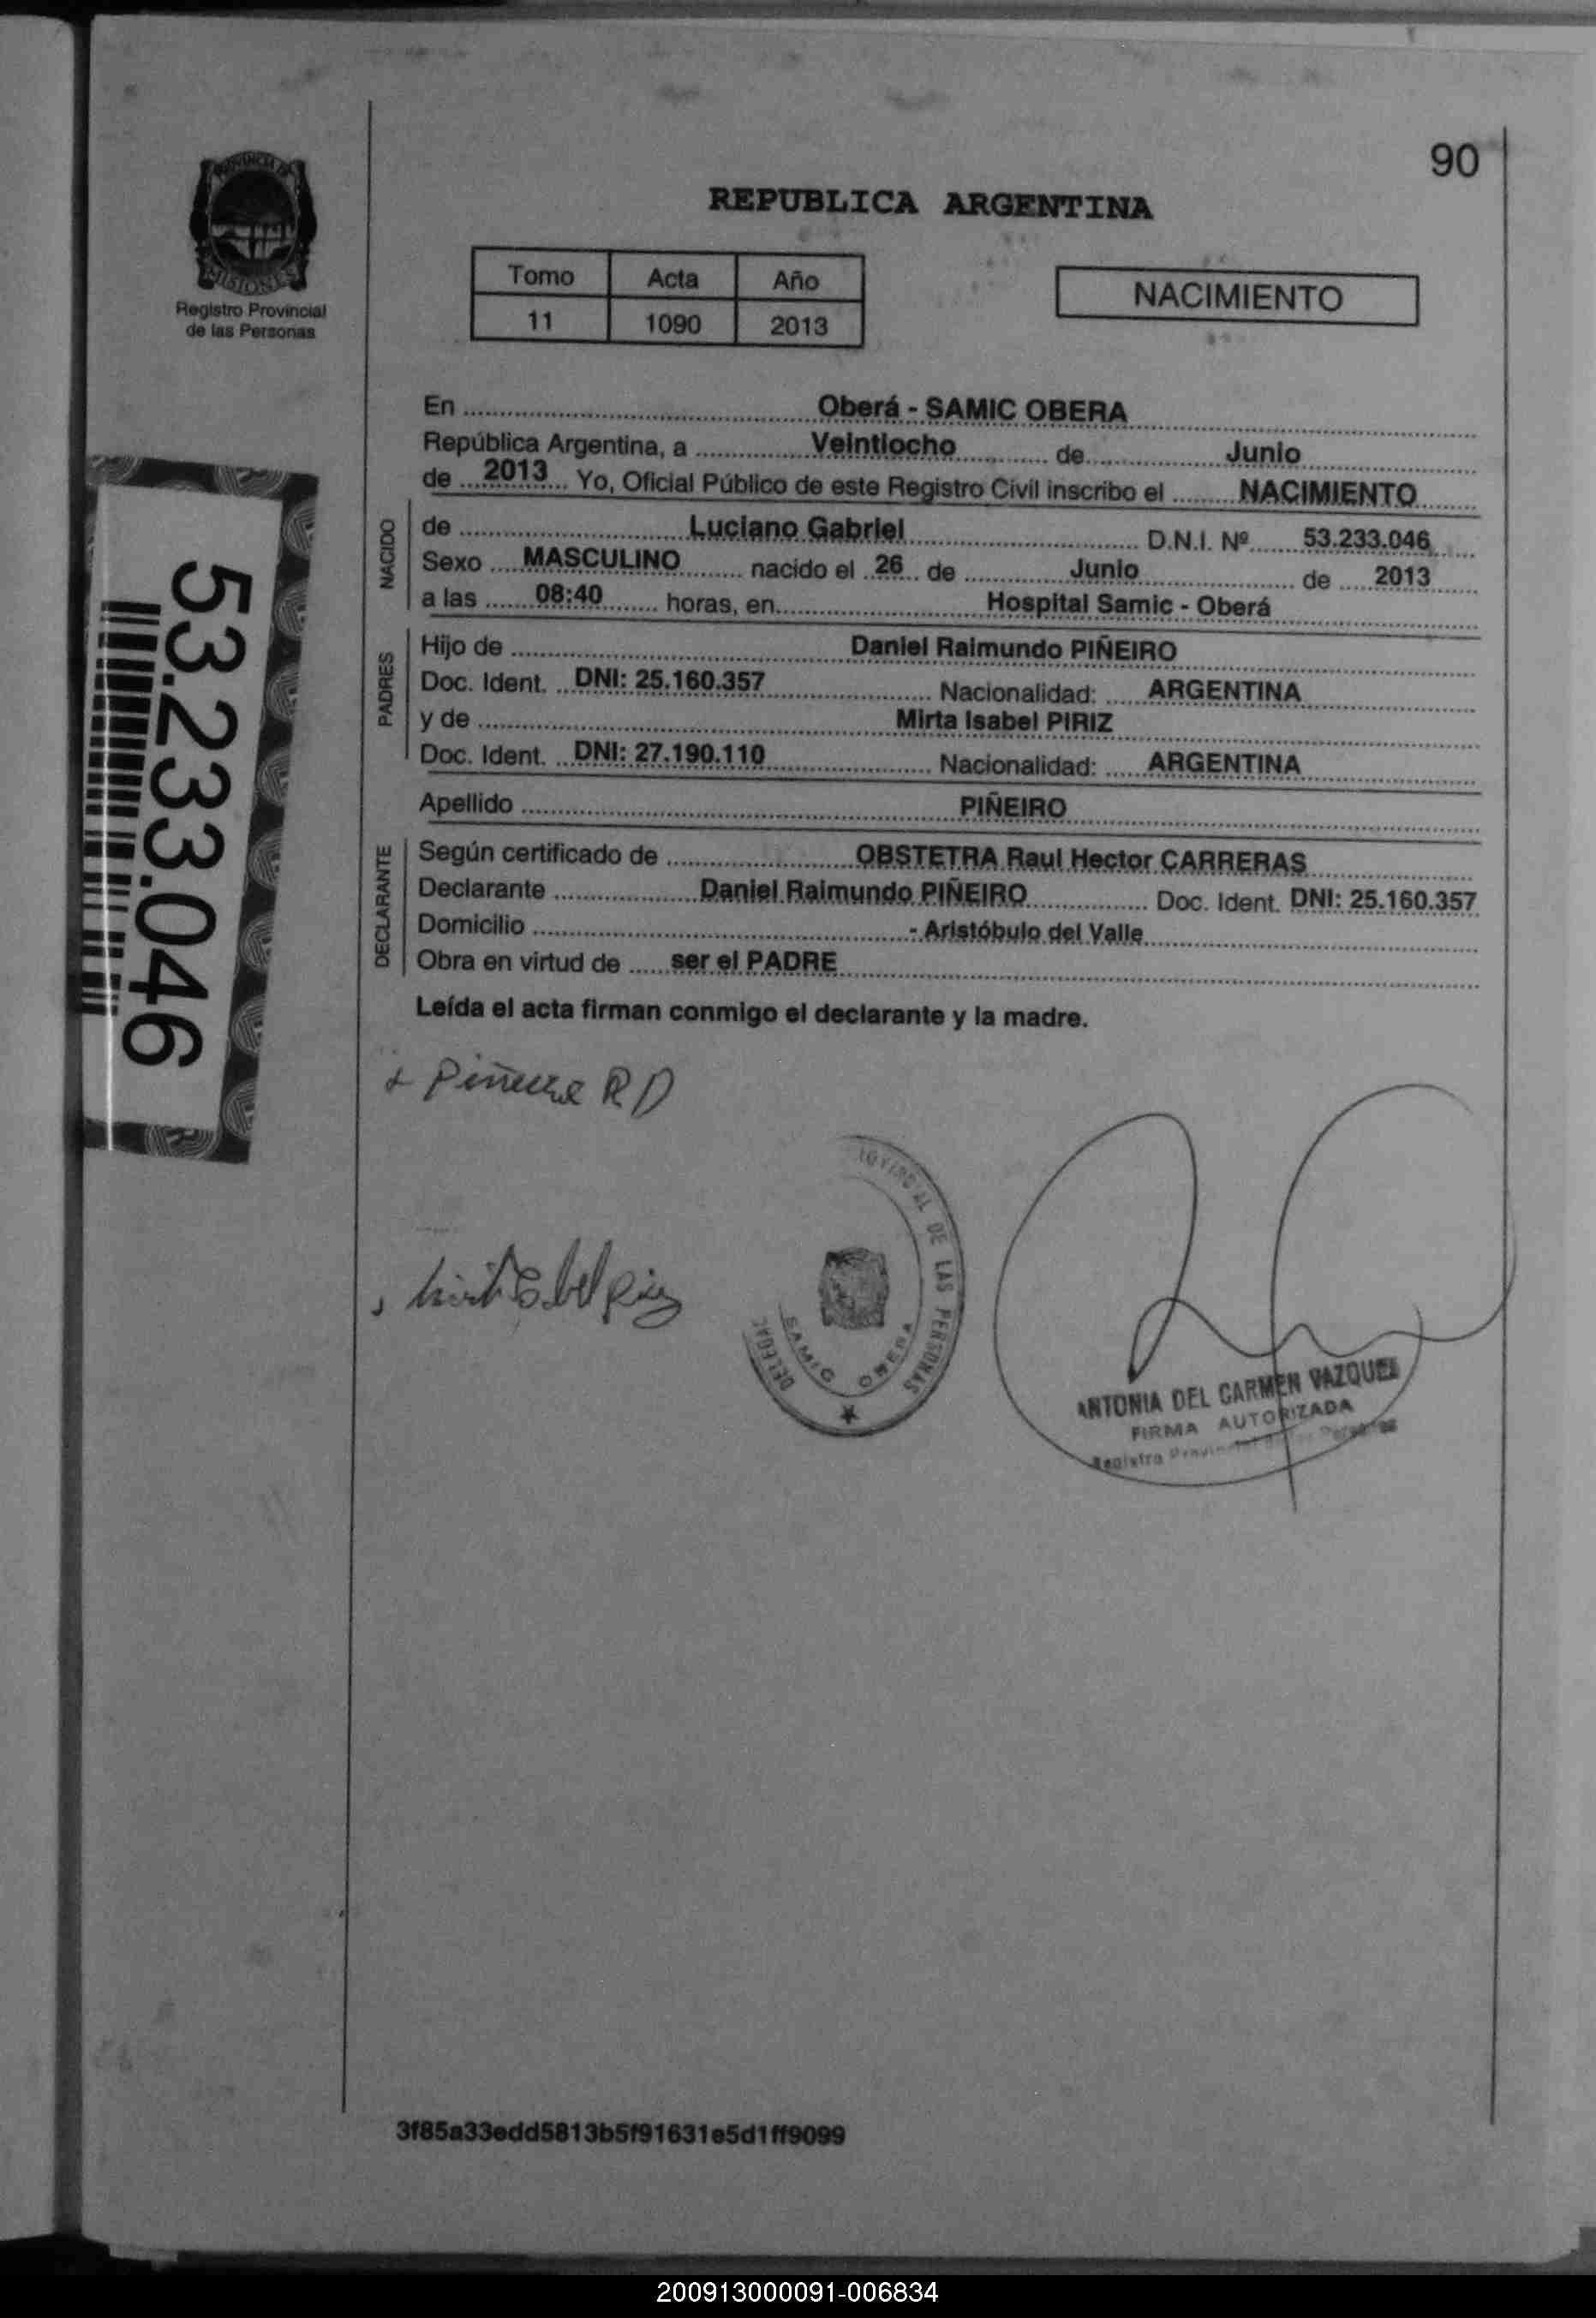 90
PROVINCIA DE
MISIONES
Registro Provincial
de las Personas
REPUBLICA ARGENTINA
Tomo Acta Año
11 1090 2013
NACIMIENTO
En Oberá - SAMIC OBERA
República Argentina, a Veintiocho de Junio
de 2013 Yo, Oficial Público de este Registro Civil inscribo el NACIMIENTO
NACIDO
de Luciano Gabriel D.N.I. Nº 53.233.046
Sexo MASCULINO nacido el 26 de Junio de 2013
a las 08:40 horas, en Hospital Samic - Oberá
PADRES
Hijo de Daniel Raimundo PIÑEIRO
Doc. Ident. DNI: 25.160.357 Nacionalidad: ARGENTINA
y de Mirta Isabel PIRIZ
Doc. Ident. DNI: 27.190.110 Nacionalidad: ARGENTINA
Apellido PIÑEIRO
DECLARANTE
Según certificado de OBSTETRA Raul Hector CARRERAS
Declarante Daniel Raimundo PIÑEIRO Doc. Ident. DNI: 25.160.357
Domicilio - Aristóbulo del Valle
Obra en virtud de ser el PADRE
Leída el acta firman conmigo el declarante y la madre.
53.233.046
R D
DE LAS PERSONAS
SAMIC OBERA
ANTONIA DEL CARMEN VAZQUEZ
FIRMA AUTORIZADA
Registro
3f85a33edd5813b5f91631e5d1ff9099
200913000091-006834